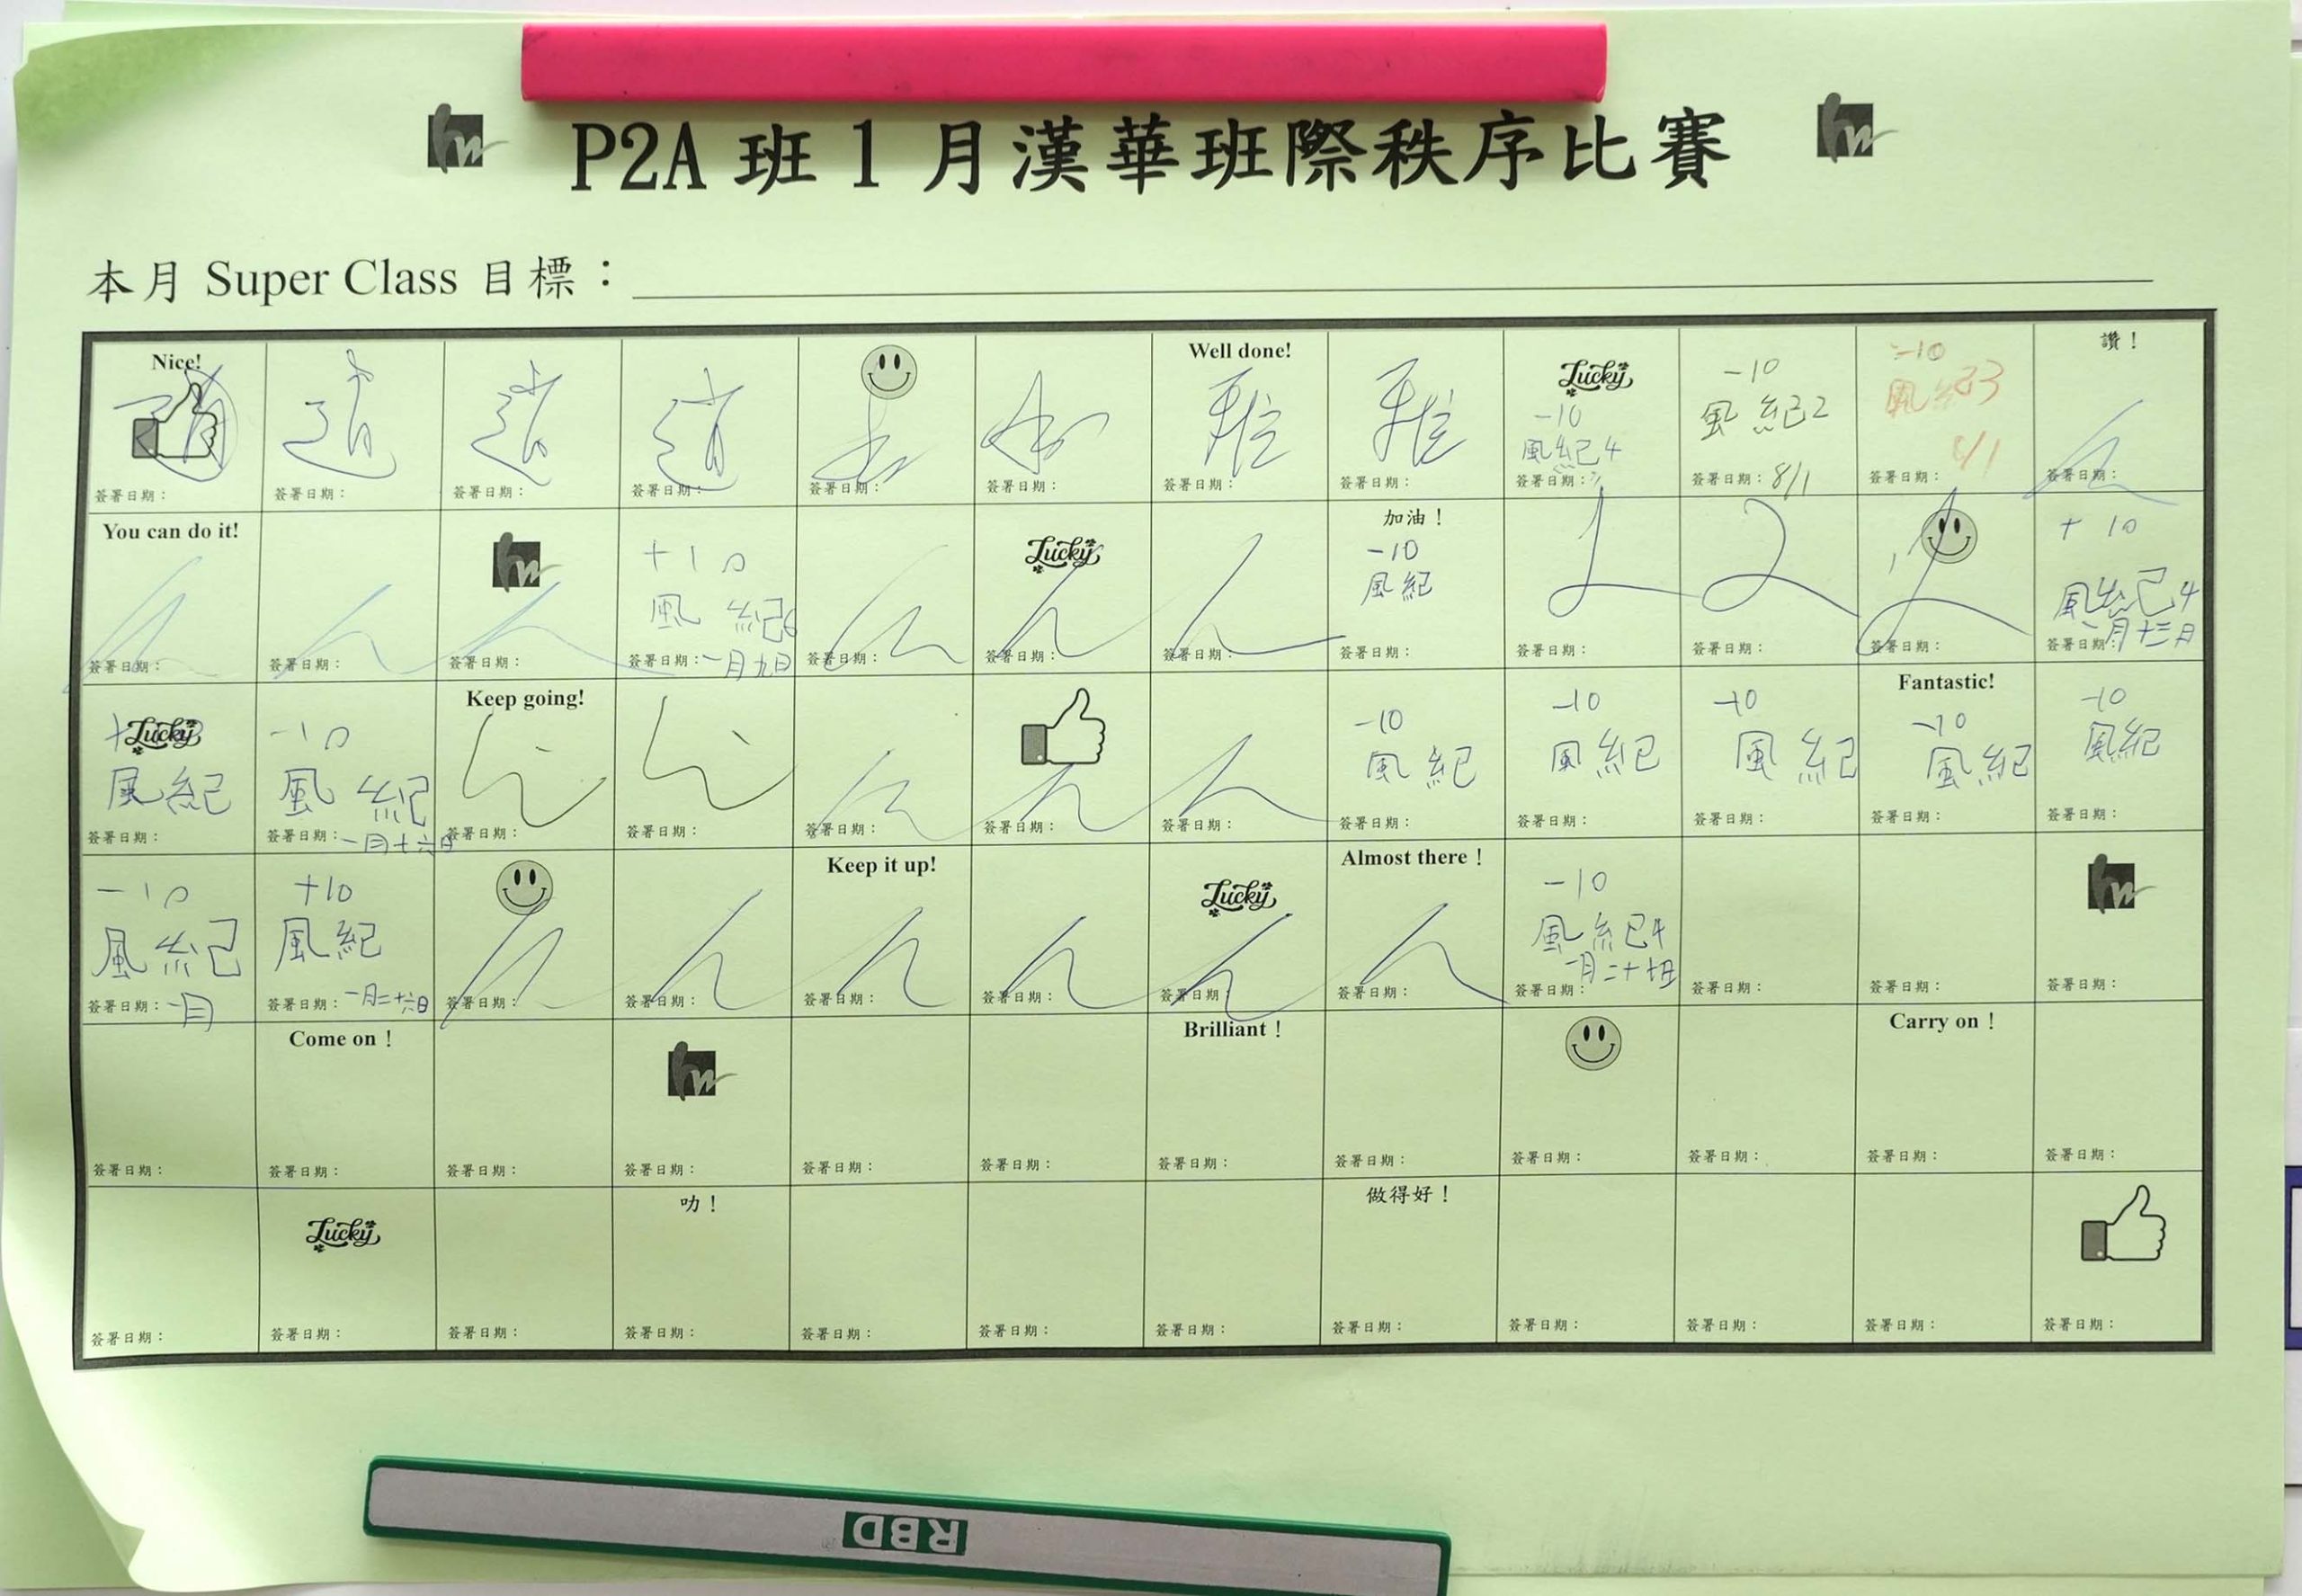 P2A 班 1 月漢華班際秩序比賽
本月 Super Class 目標：
Nice!
簽署日期：
趙
簽署日期：
趙
簽署日期：
趙
簽署日期：
簽署日期：
簽署日期：
Well done!
雅
簽署日期：
雅
簽署日期：
Lucky
-10
風紀4
簽署日期：
-10
風紀2
簽署日期：8/1
-10
風紀3
8/1
簽署日期：
讚！
簽署日期：
You can do it!
簽署日期：
簽署日期：
hw
簽署日期：
+10
風紀6
簽署日期：一月九日
簽署日期：
Lucky
簽署日期：
簽署日期：
加油！
-10
風紀
簽署日期：
簽署日期：
簽署日期：
簽署日期：
+10
風紀4
一月十三日
簽署日期：
Lucky
風紀
簽署日期：
-10
風紀
簽署日期：一月十六日
Keep going!
簽署日期：
簽署日期：
簽署日期：
簽署日期：
簽署日期：
-10
風紀
簽署日期：
-10
風紀
簽署日期：
-10
風紀
簽署日期：
Fantastic!
-10
風紀
簽署日期：
-10
風紀
簽署日期：
-10
風紀
簽署日期：一月
+10
風紀
簽署日期：一月二十六日
簽署日期：
簽署日期：
Keep it up!
簽署日期：
簽署日期：
Lucky
簽署日期：
Almost there！
簽署日期：
-10
風紀4
一月二十七日
簽署日期：
簽署日期：
簽署日期：
hw
簽署日期：
簽署日期：
Come on！
簽署日期：
簽署日期：
hw
簽署日期：
簽署日期：
簽署日期：
Brilliant！
簽署日期：
簽署日期：
簽署日期：
簽署日期：
Carry on！
簽署日期：
簽署日期：
簽署日期：
Lucky
簽署日期：
簽署日期：
叻！
簽署日期：
簽署日期：
簽署日期：
簽署日期：
做得好！
簽署日期：
簽署日期：
簽署日期：
簽署日期：
簽署日期：
RBD